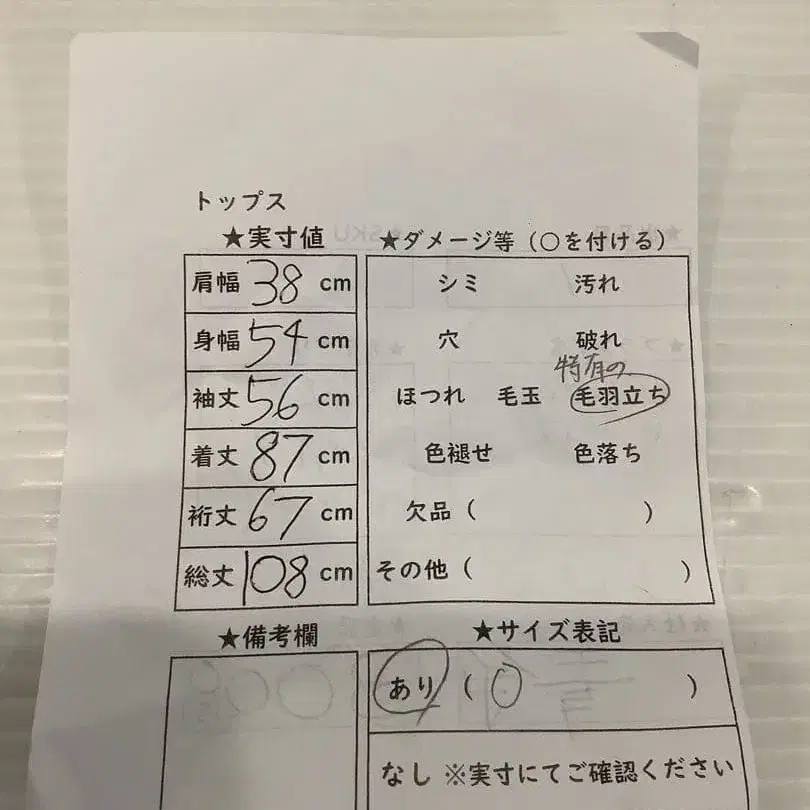 トップス
★実寸値
肩幅 38 cm
身幅 54 cm
袖丈 56 cm
着丈 87 cm
裄丈 67 cm
総丈 108 cm
★ダメージ等（○を付ける）
シミ 汚れ
穴 破れ
特有の
ほつれ 毛玉 毛羽立ち
色褪せ 色落ち
欠品（ ）
その他（ ）
★備考欄
★サイズ表記
あり（ 0 ）
なし ※実寸にてご確認ください